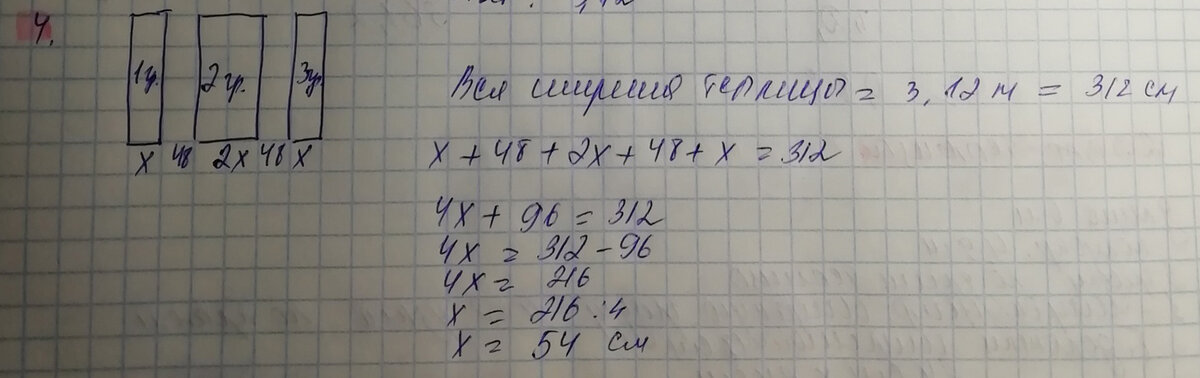 4.
1гр. 2гр. 3гр.
x 48 2x 48 x
Вся ширина теплицы = 3,12 м = 312 см
x + 48 + 2x + 48 + x = 312
4x + 96 = 312
4x = 312 - 96
4x = 216
x = 216 : 4
x = 54 см